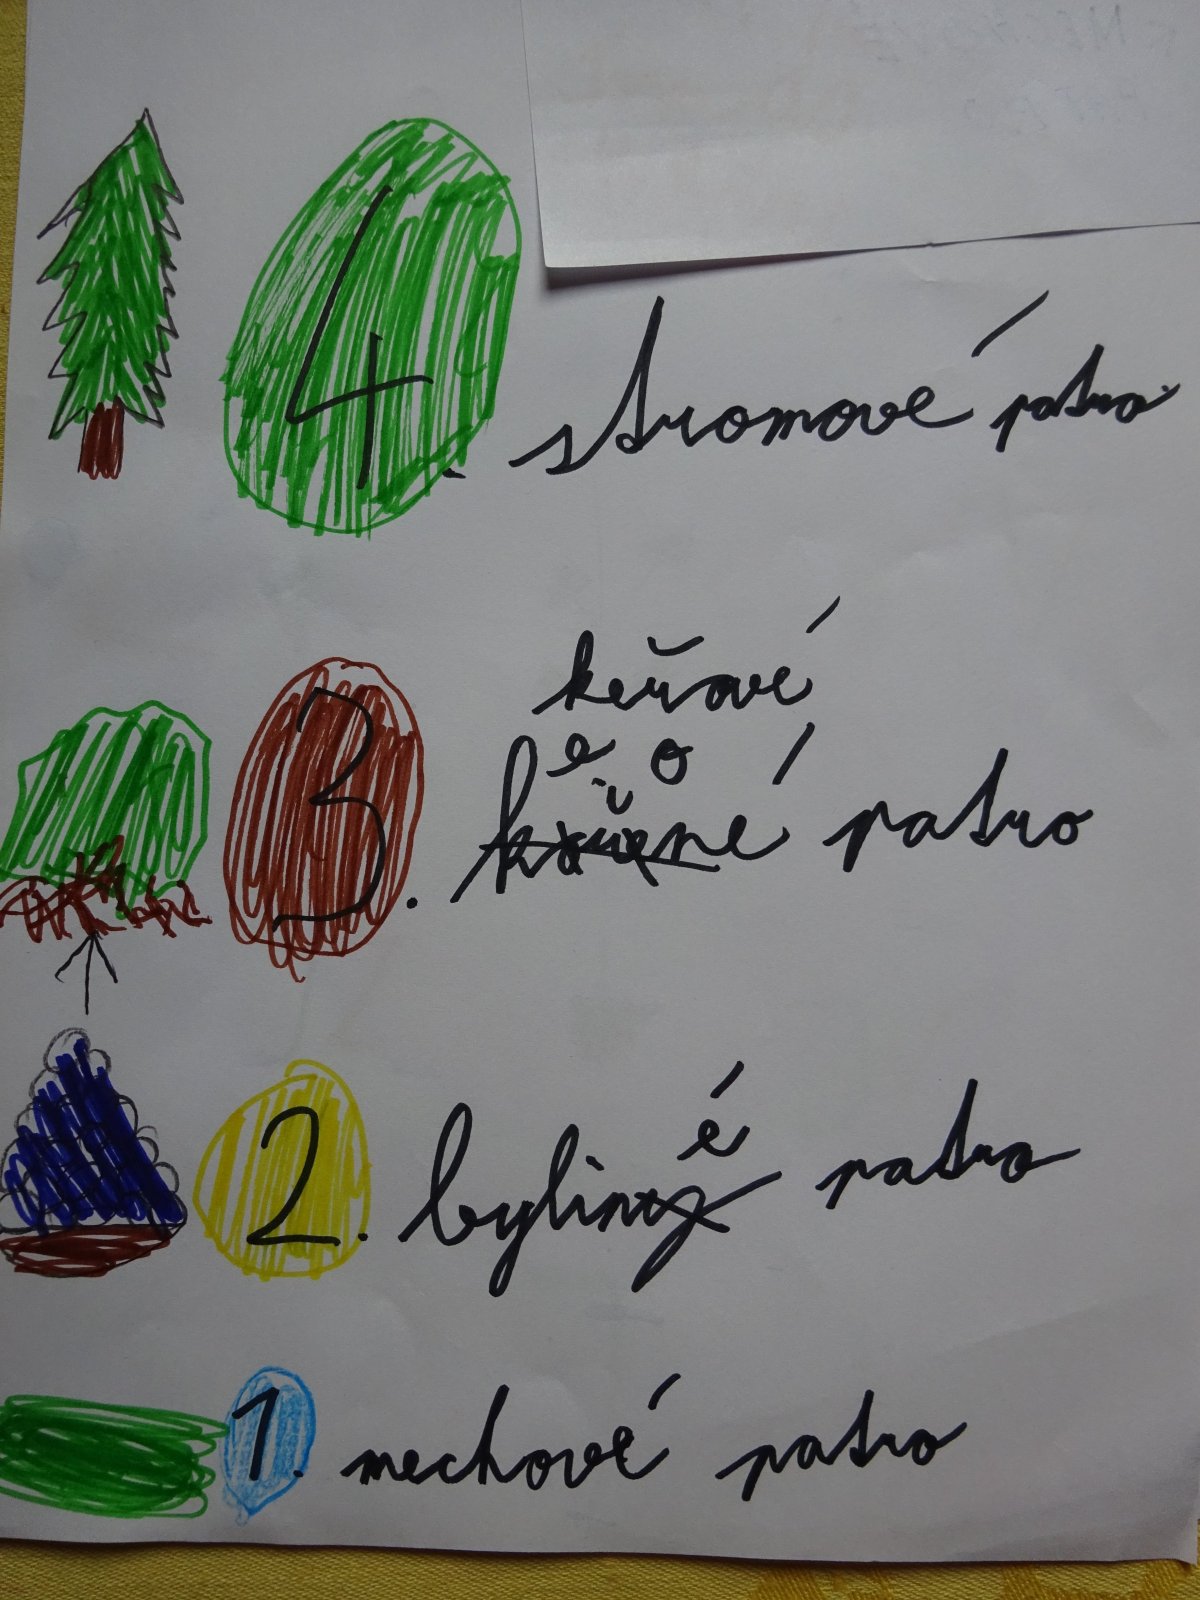 4. stromové patro
keřové
e o
3. patro
2. byliné patro
1. mechové patro